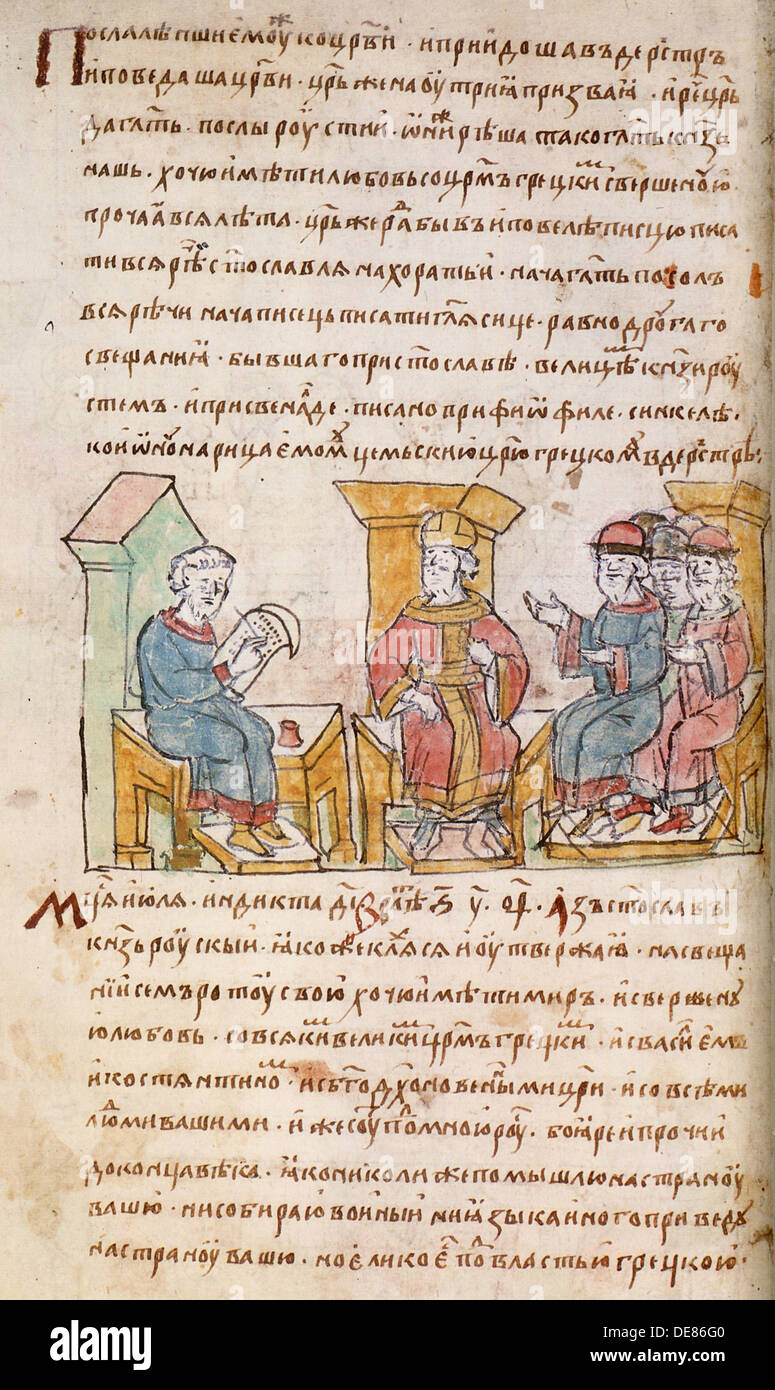 Послалѣпшиемоуⷤкоцр҃ви · ипринидошавъдерⷭтръ
иповедашацр҃ви · цр҃ьженаоутриꙗпризваꙗ · иреⷱцр҃ь
даглт҃ь · послыроустии · ѡниⷤрѣшатакоглт҃ькнз҃ь
нашь · хочюимѣтилюбовьсоцр҃мъгрецкиⷨсвершеноую
прочаꙗвсялѣта · цр҃ьжераⷣбывъиповелѣписцюписа
тивсярѣⷱст҃ославлянахоратьи · начаглт҃ьпосолъ
всярѣчииначаписецьписатигл҃ясице · равнодроугаго
свещаниꙗ · бывшагоприст҃ославѣ · велицѣⷨкнз҃ироу
стемъ · иприсвенаⷣде · писаноприфиѡфиле · синкелѣ ·
коиѡноунарицаемомоуⷨцемьскииюцр҃югрецкомоуⷨвдерⷭтрѣ ·
Мцⷭ҃аиюля · индиктадⷧ҇івълѣⷮ ѕ҃ у҃ ч҃ · Азъст҃ославъ
кнз҃ьроускыи · ꙗкоⷤекляⷯсяиоутвержаю · насвеща
нииисемъротоусвою · хочюимѣтимиръ · исвершеноу
юлюбовь · совсякиⷨвеликиⷨцр҃мъгрецкиⷨ · исвасиⷧемъ
икостянтиноⷨ · исбг҃одхн҃овеныⷨмицр҃и · исовсѣми
люⷣмивашими · ижесоуⷮпоⷣмноюроуⷭ · боꙗреипрочии
доконцавѣка · ꙗконииколижепомышлюнастраноу
вашю · нисобираювоиныиниꙗзыкаиногоприведоу
настраноувашю · ноеликоеⷭпоⷣвластьюгрецкою ·
alamy
Image ID: DE86G0
www.alamy.com